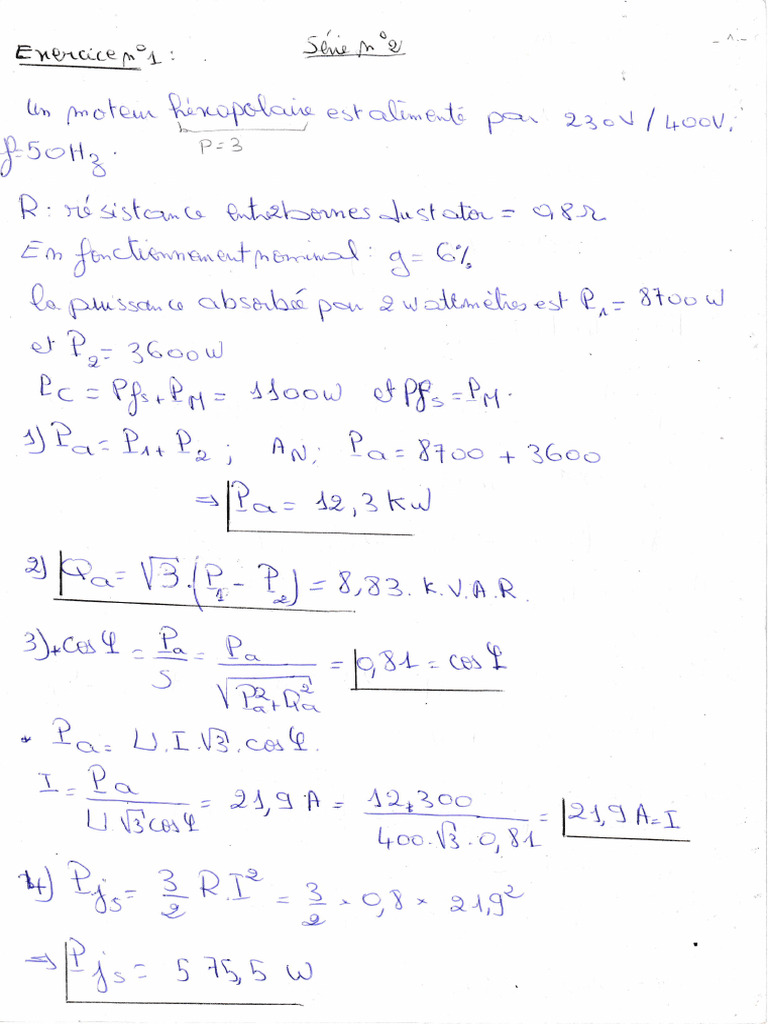 Exercice n°1 : Série n°2 -1-
Un moteur héxapolaire est alimenté par 230V/400V,
P=3
f=50Hz.
R : résistance entre 2 bornes du stator = 0,8Ω
En fonctionnement nominal : g = 6%
la puissance absorbée par 2 wattmètres est P₁ = 8700W
et P₂ = 3600W
Pc = Pfs + PM = 1100W et Pfs = PM.
1) Pa = P1 + P2 ; AN ; Pa = 8700 + 3600
⇒ Pa = 12,3 kW
2) Qa = √3.(P1 - P2) = 8,83. K.V.A.R.
3) * cos φ = Pa/S = Pa/√(Pa² + Qa²) = 0,81 = cos φ
* Pa = U.I.√3.cos φ.
I = Pa/(U.√3 cos φ) = 21,9 A = 12,300/(400.√3.0,81) = 21,9 A = I
4) Pjs = 3/2 R.I² = 3/2 × 0,8 × 21,9²
⇒ Pjs = 575,5 W